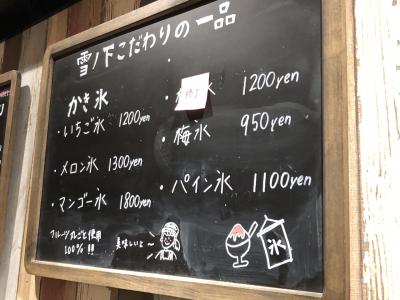 雪ノ下こだわりの一品
かき氷
・いちご氷 1200yen
・メロン氷 1300yen
・マンゴー氷 1800yen
フルーツ丸ごと使用
100%!!
・
・氷 1200yen
・梅氷 950yen
・パイン氷 1100yen
美味しいよ〜
氷